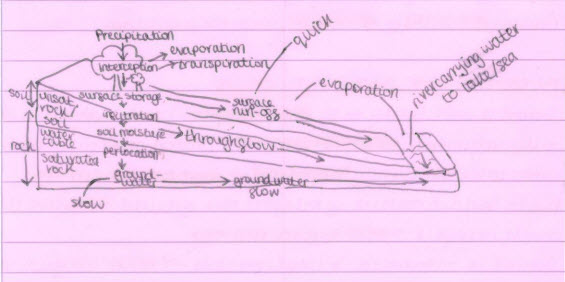 Precipitation
evaporation
interception
transpiration
quick
evaporation
river carrying water
to lake/sea
soil
unsat.
rock/
soil
surface storage
surface
run-off
infiltration
water
table
soil moisture
throughflow
rock
percolation
saturated
rock
ground-
water
groundwater
flow
slow